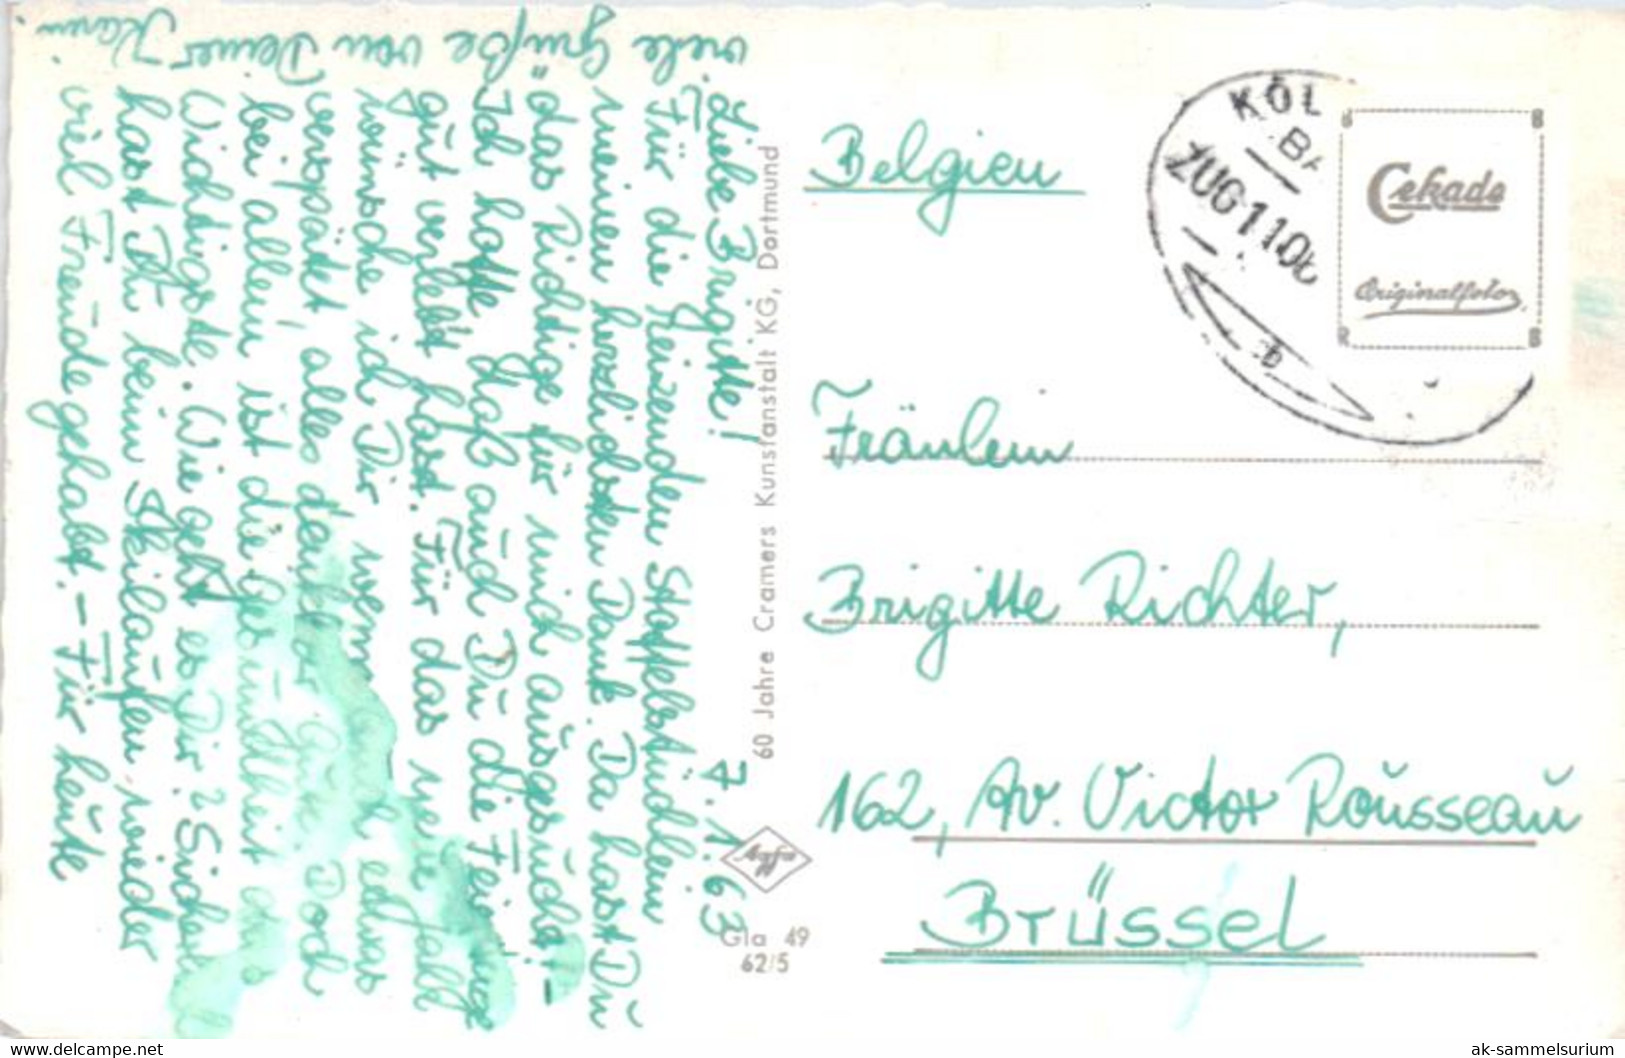 7.1.63
Liebe Brigitte!
Für die reizenden Stoffelstündlein
meinen herzlichsten Dank. Da hast Du
das Richtige für mich ausgesucht! –
Ich hoffe, daß auch Du die Feiertage
gut verlebt hast. Für das neue Jahr
wünsche ich Dir, wenn auch etwas
verspätet, alles denkbar Gute. Doch
bei allem ist die Gesundheit das
Wichtigste. Wie geht es Dir? Sicher
hast Du beim Skilaufen wieder
viel Freude gehabt. – Für heute
viele Grüße von Deiner Karin.
60 Jahre Cramers Kunstanstalt KG, Dortmund
Agfa
Gla 49
62/5
KÖL
BA
ZUG 1106
b
Cekade
Originalfoto
Belgien
Fräulein
Brigitte Richter,
162, Av. Victor Rousseau
Brüssel
www.delcampe.net
ak-sammelsurium